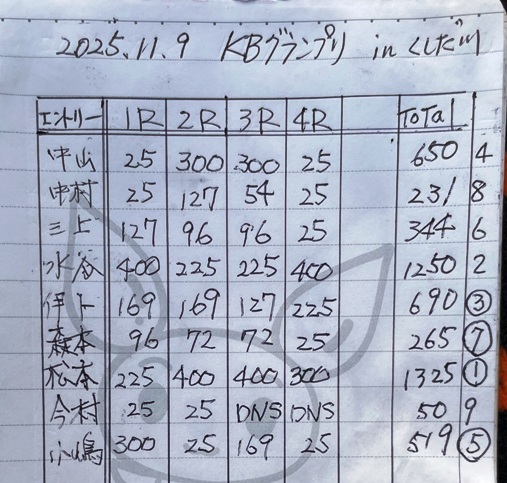 2025.11.9 KBグランプリ inくしだ川
エントリー 1R 2R 3R 4R ToTaL
中山 25 300 300 25 650 4
中村 25 127 54 25 231 8
三上 127 96 96 25 344 6
水谷 400 225 225 400 1250 2
伊ト 169 169 127 225 690 ③
森本 96 72 72 25 265 ⑦
松本 225 400 400 300 1325 ①
今村 25 25 DNS DNS 50 9
小嶋 300 25 169 25 519 ⑤